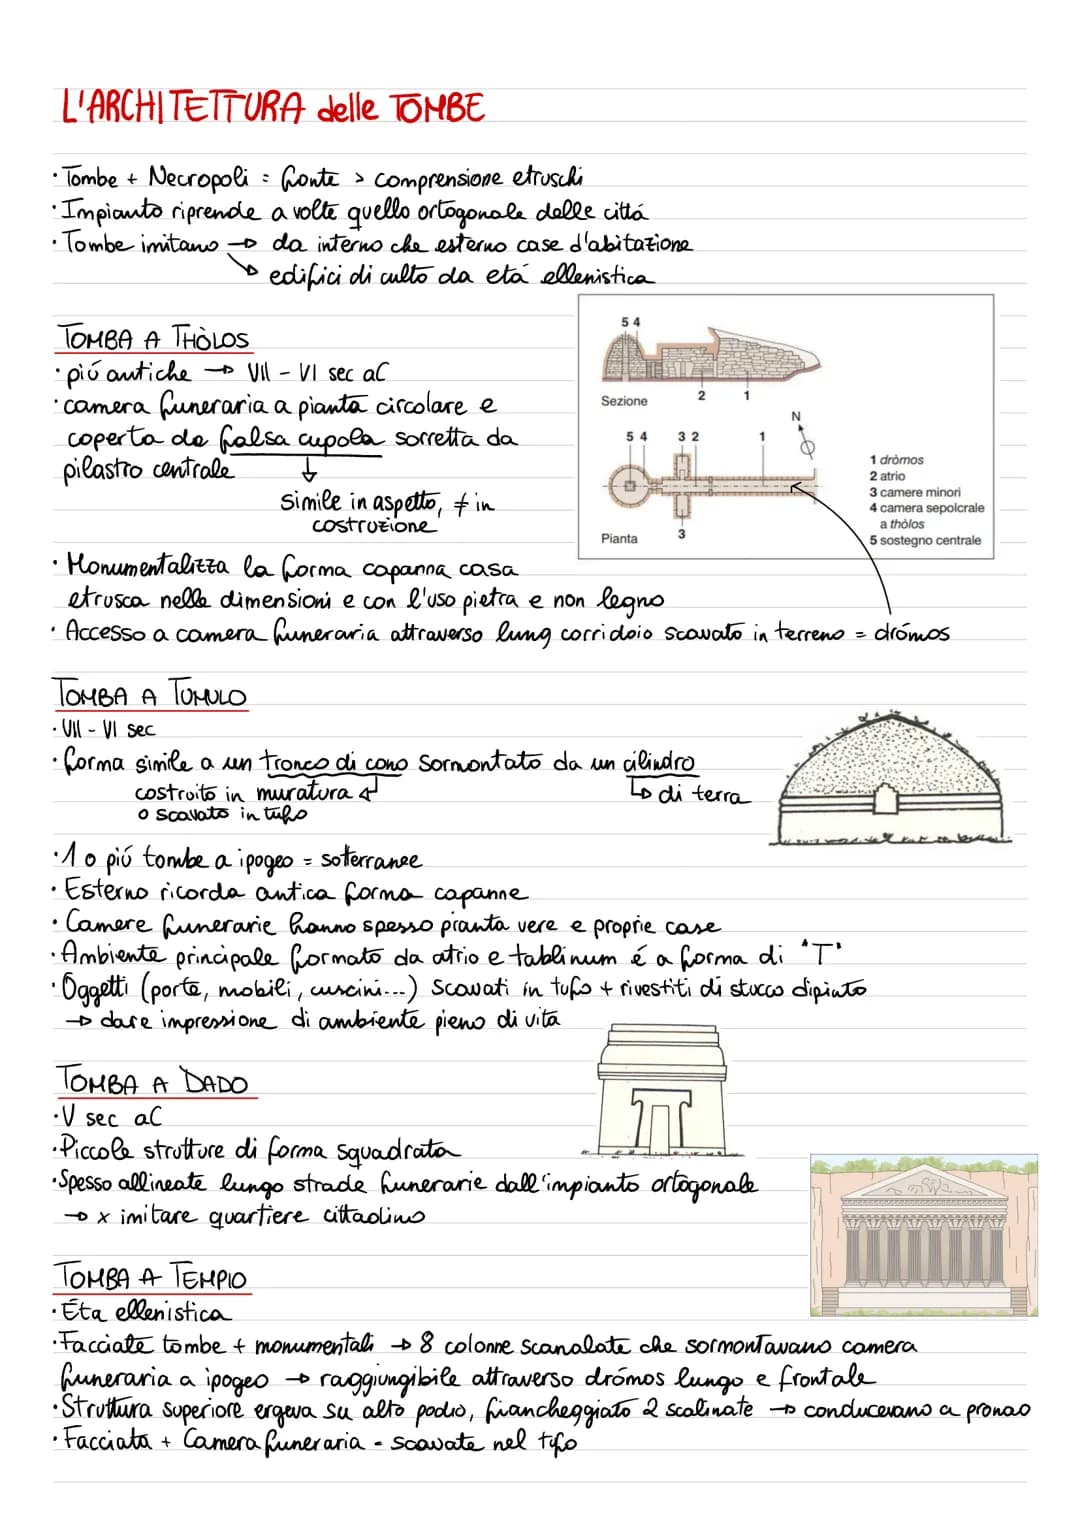 L'ARCHITETTURA delle TOMBE
· Tombe + Necropoli = fonte > comprensione etruschi
· Impianto riprende a volte quello ortogonale delle cittá
· Tombe imitano → da interno che esterno case d'abitazione
→ edifici di culto da etá ellenistica
TOMBA A THÒLOS
· piú antiche → VII - VI sec aC
· camera funeraria a pianta circolare e
coperta da falsa cupola sorretta da
pilastro centrale ↓
simile in aspetto, ≠ in
costruzione
5 4
Sezione
2 1
N
5 4 3 2 1
3
Pianta
1 dròmos
2 atrio
3 camere minori
4 camera sepolcrale
a thòlos
5 sostegno centrale
· Monumentalizza la forma capanna casa
etrusca nelle dimensioni e con l'uso pietra e non legno
· Accesso a camera funeraria attraverso lung corridoio scavato in terreno = drómos
TOMBA A TUMULO
· VII - VI sec
· forma simile a un tronco di cono sormontato da un cilindro
costruito in muratura ↲ ↳ di terra
o scavato in tufo
· 1 o piú tombe a ipogeo = sotterranee
· Esterno ricorda antica forma capanne
· Camere funerarie hanno spesso pianta vere e proprie case
· Ambiente principale formato da atrio e tablinum é a forma di "T"
· Oggetti (porte, mobili, cuscini...) scavati in tufo + rivestiti di stucco dipinto
→ dare impressione di ambiente pieno di vita
TOMBA A DADO
· V sec aC
· Piccole strutture di forma squadrata
· Spesso allineate lungo strade funerarie dall'impianto ortogonale
→ x imitare quartiere cittadino
TOMBA A TEMPIO
· Éta ellenistica
· Facciate tombe + monumentali → 8 colonne scanalate che sormontavano camera
funeraria a ipogeo → raggiungibile attraverso drómos lungo e frontale
· Struttura superiore ergeva su alto podio, fiancheggiato 2 scalinate → conducevano a pronao
· Facciata + Camera funeraria - scavate nel tifo